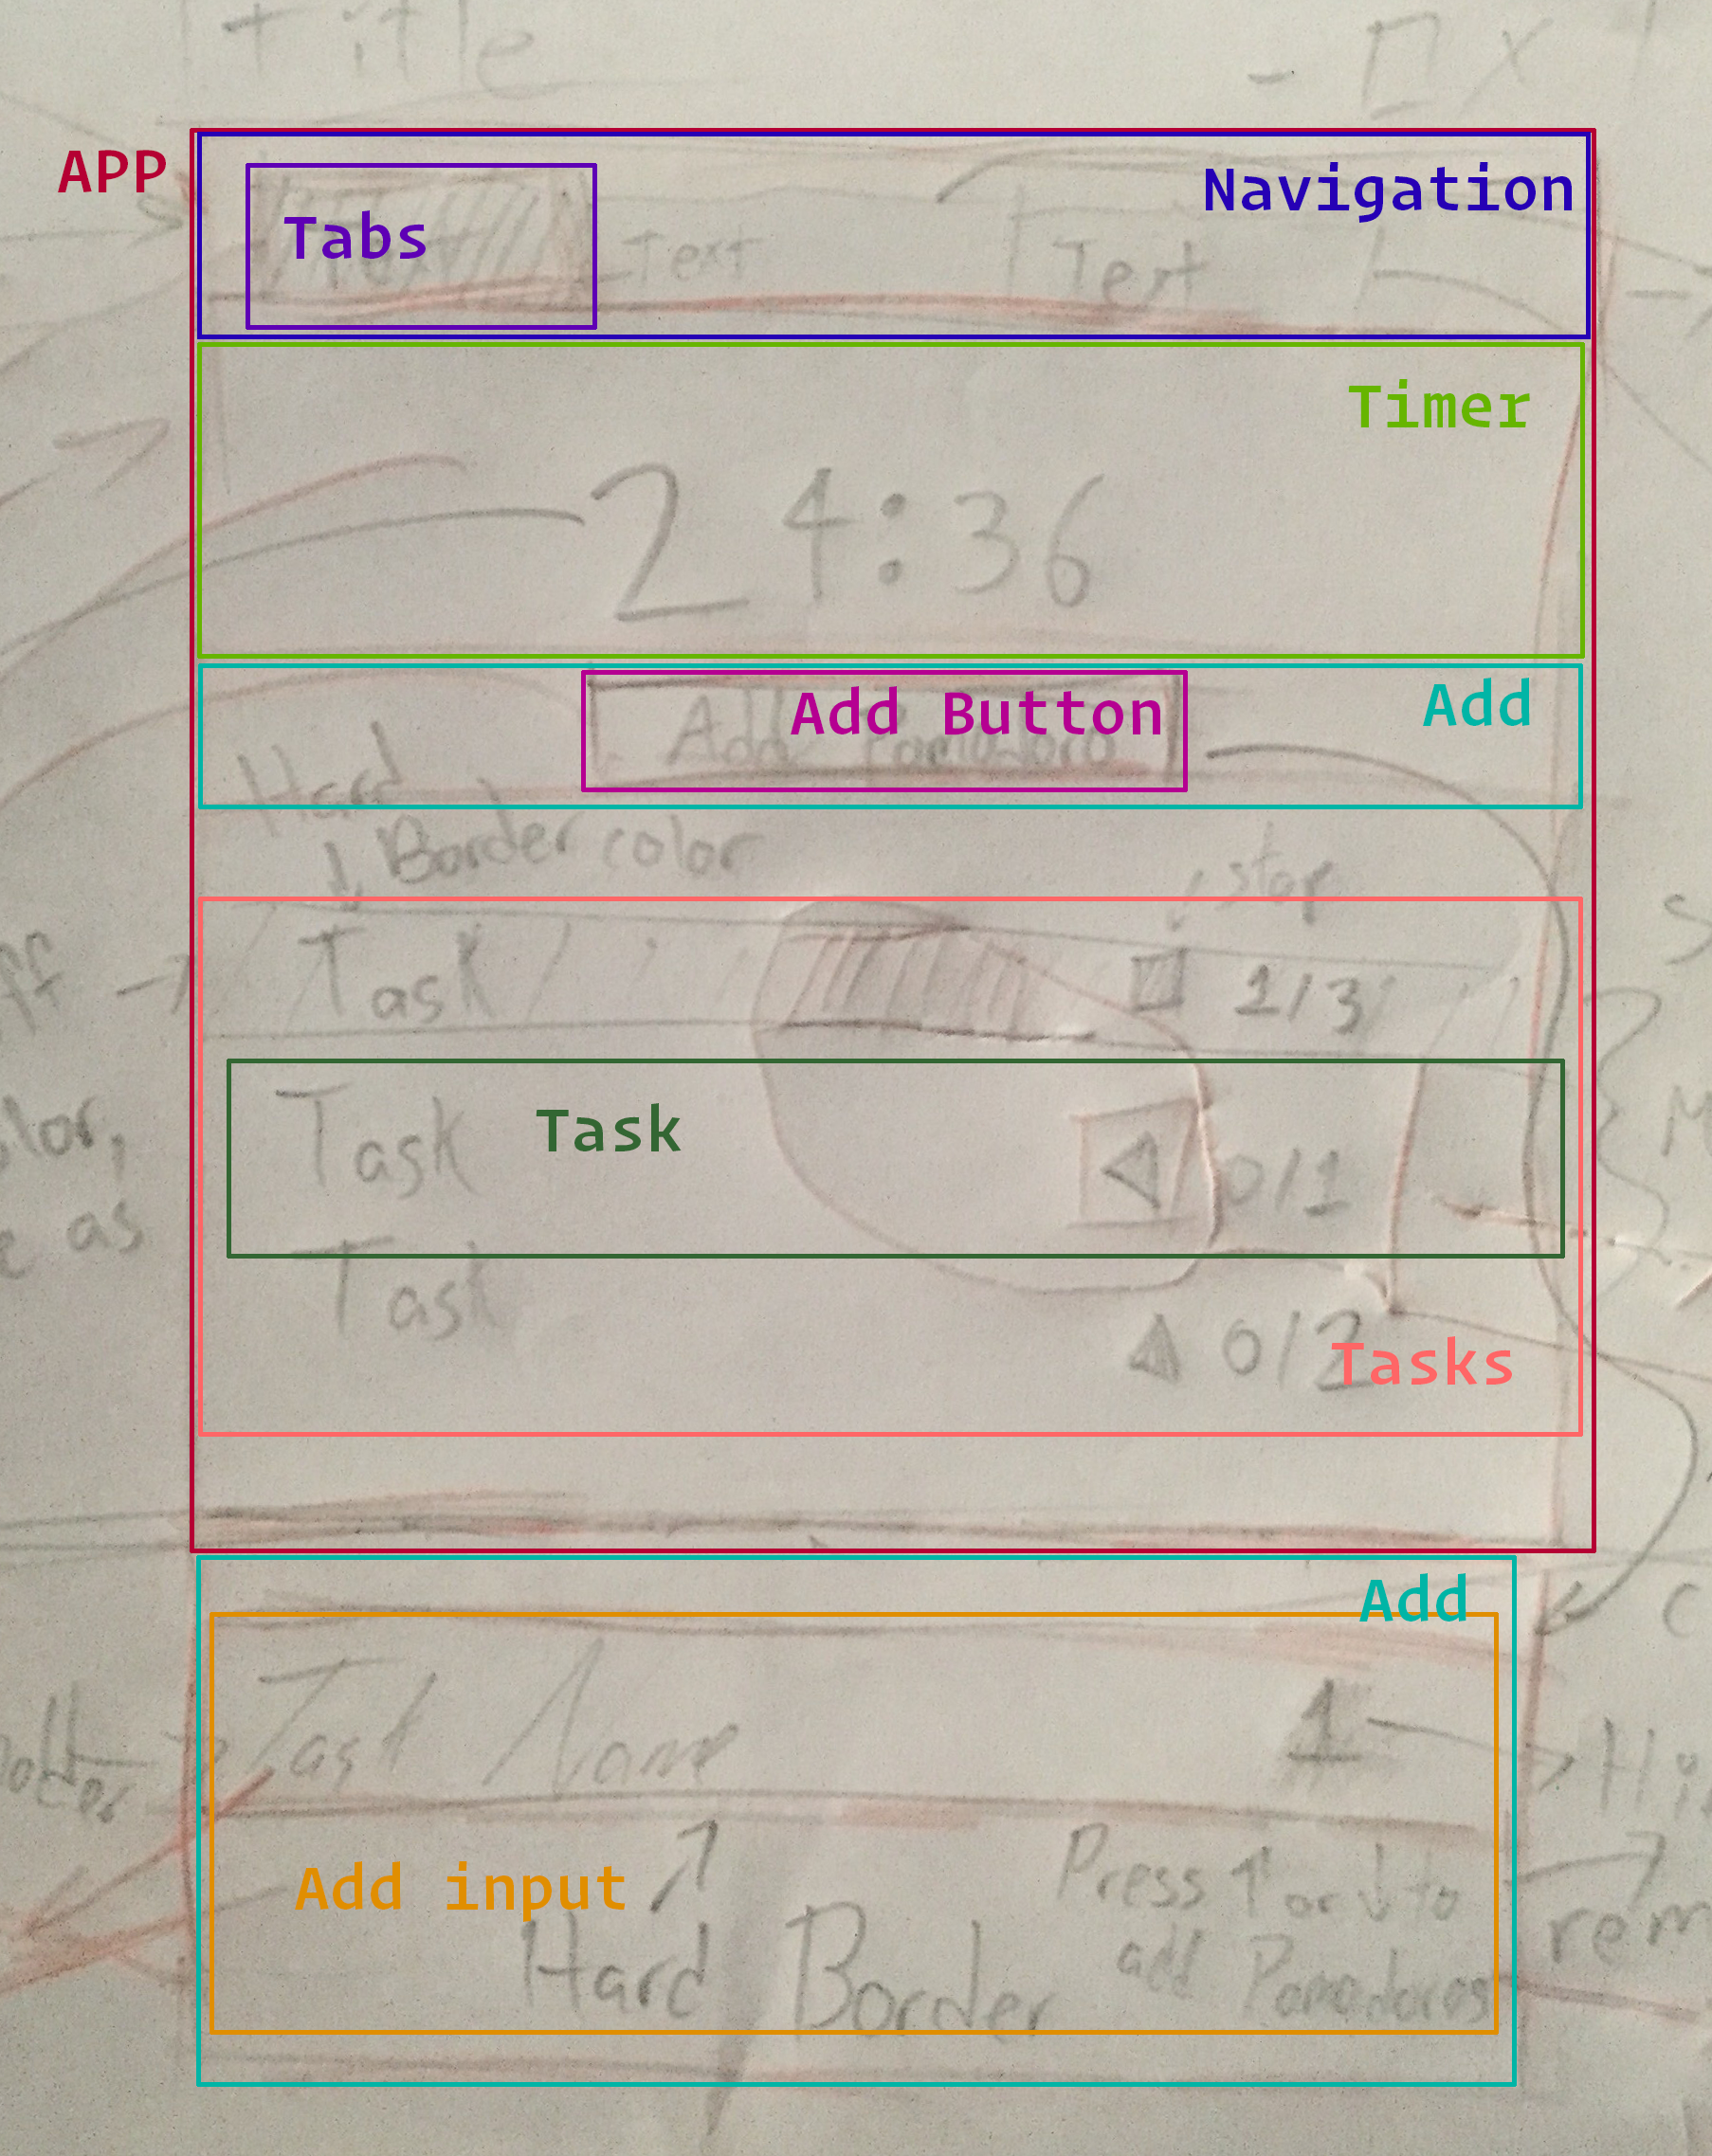 Title
- □ X
APP
Navigation
Tabs
Text
Text
Timer
24:36
Add Button
Add
Add Pomodoro
Hard
Border color
stop
Task
1/3
Task
Task
0/1
Task
0/2
Tasks
as
Add
Task Name
1
Add input
Press ↑ or ↓ to
add Pomodoros
Hard Border